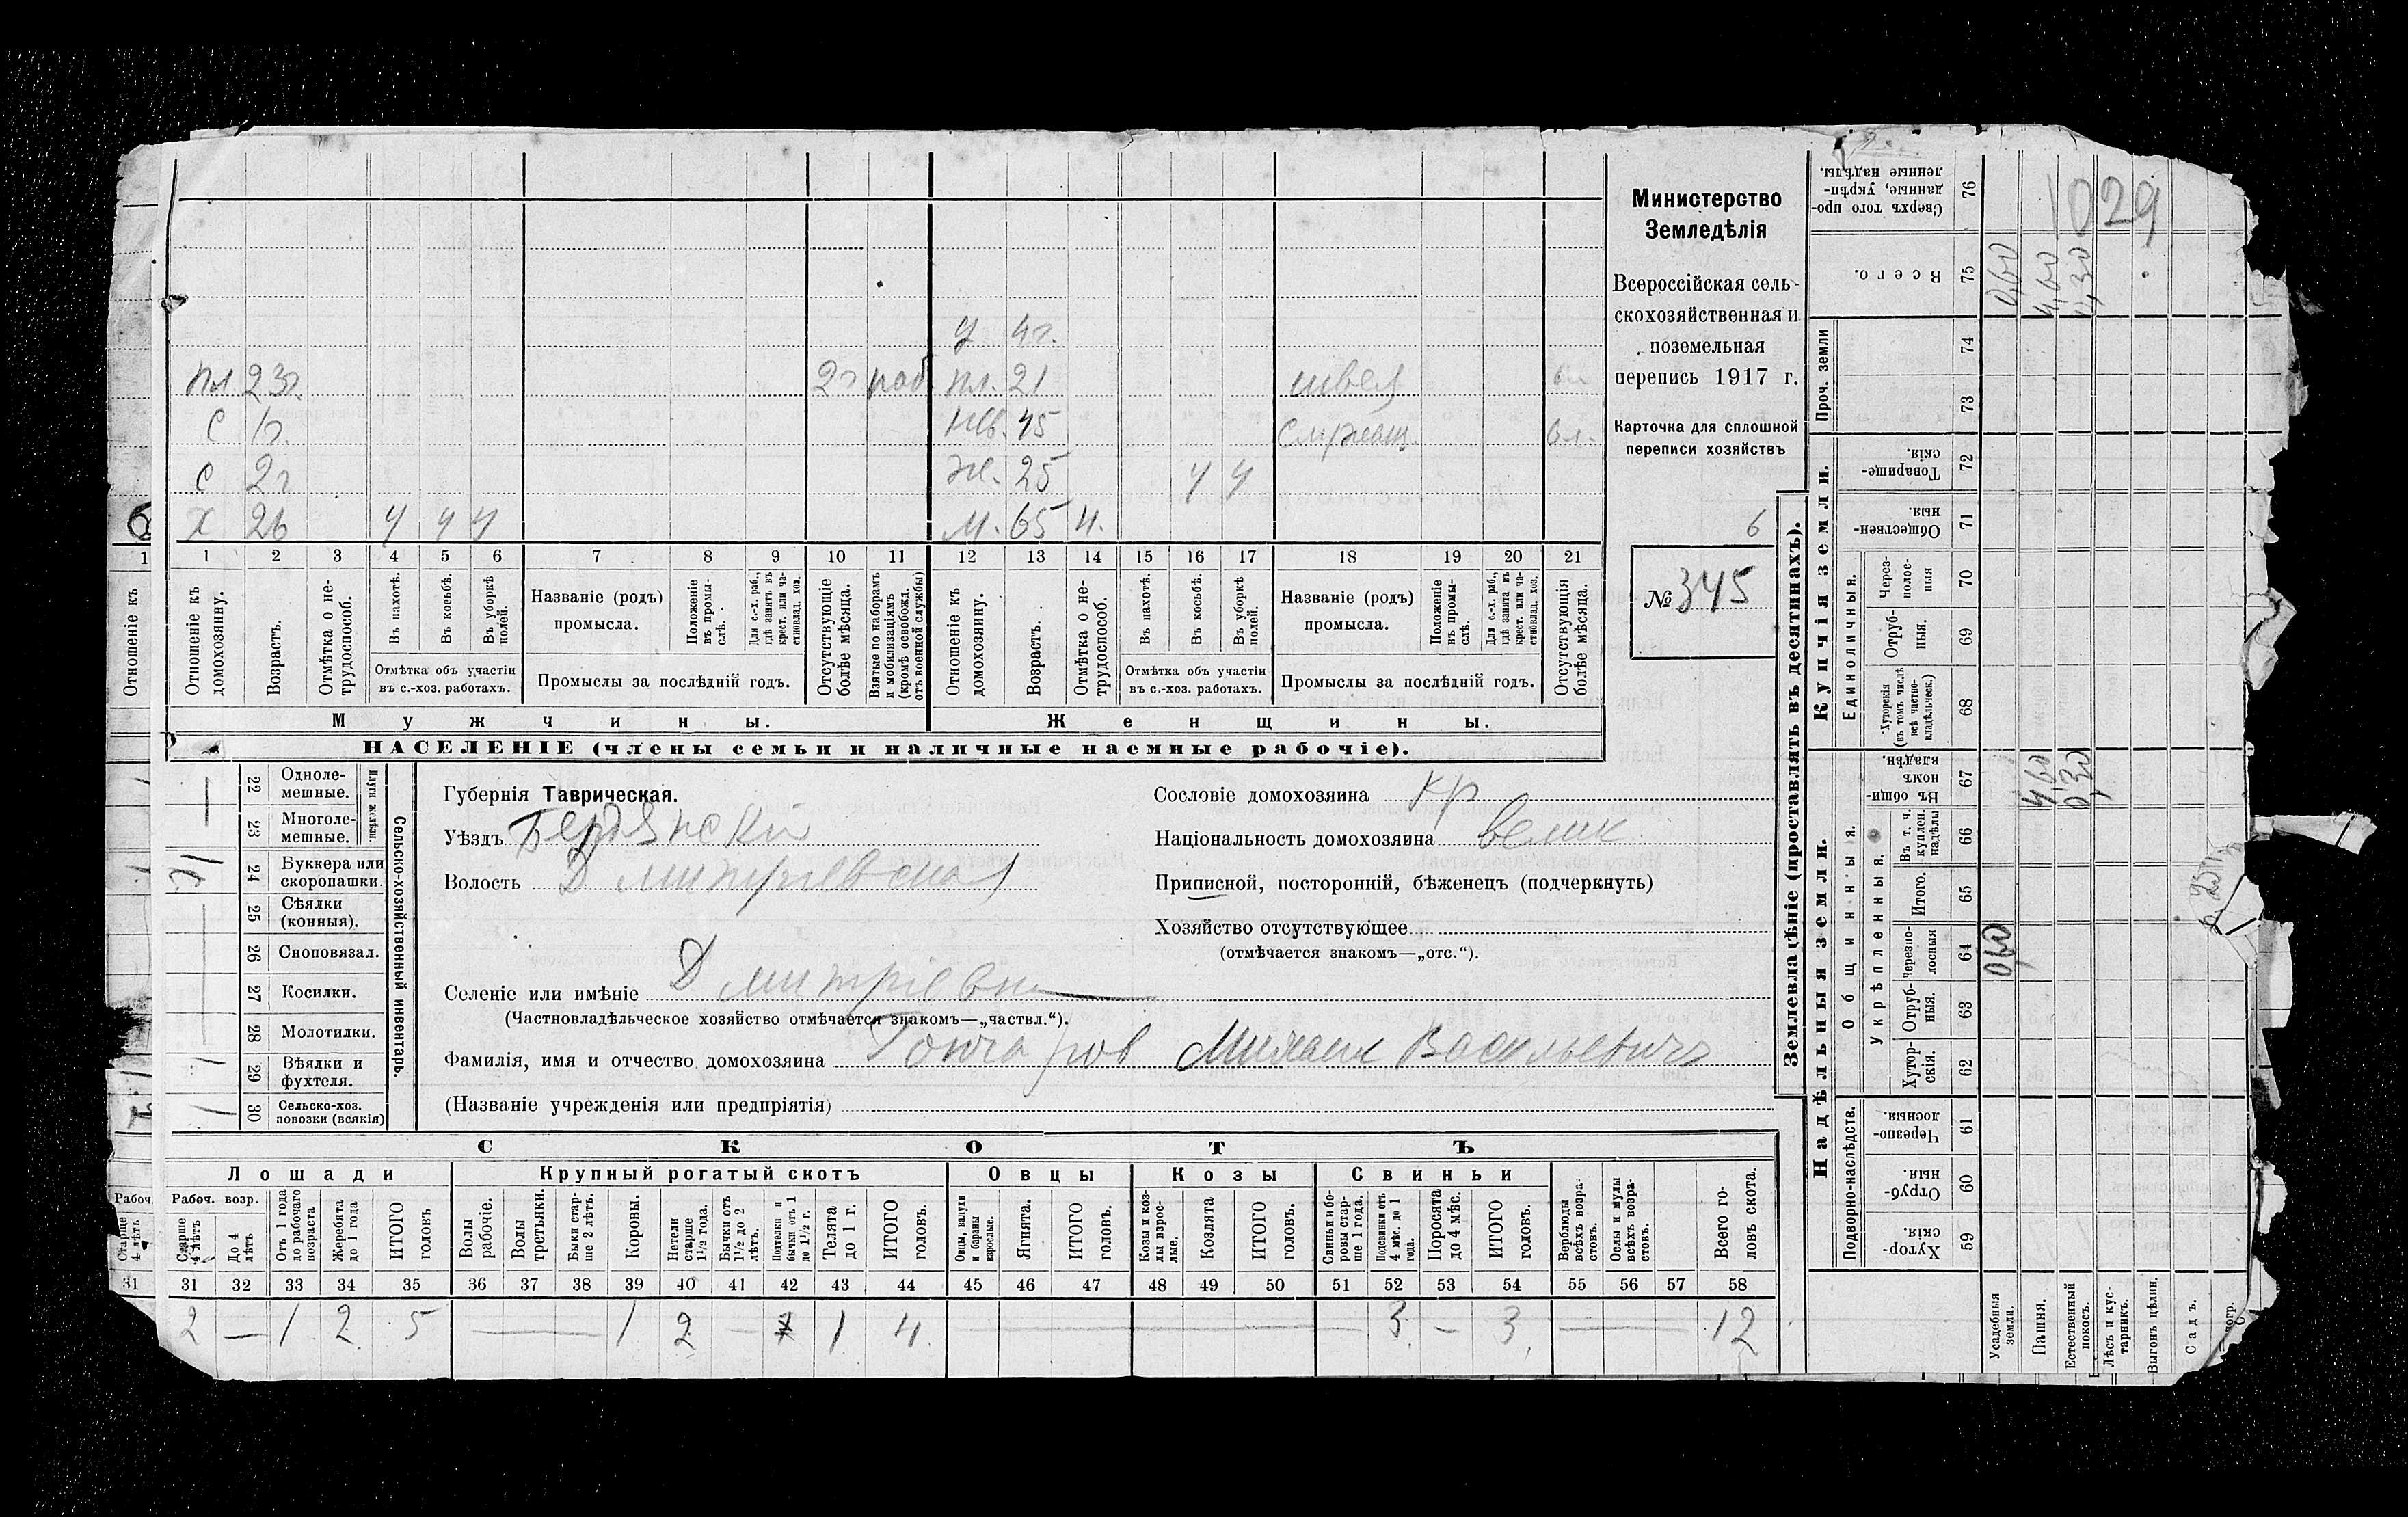 Министерство
Земледѣлія
Всероссійская сель-
скохозяйственная и
поземельная
перепись 1917 г.
Карточка для сплошной
переписи хозяйствъ
6
№ 345
1029
У 4г.
пл. 23г. 2г наб. пл. 21 швея
С 1г. 45 вл.
С 2г ж. 25 ч ч
Х 26 ч ч ч м. 65 ч.
1 1 2 3 4 5 6 7 8 9 10 11 12 13 14 15 16 17 18 19 20 21
Отношеніе къ
Отношеніе къ домохозяину.
Возрастъ.
Отмѣтка о не-трудоспособ.
Въ пахотѣ.
Въ косьбѣ.
Въ уборкѣ полей.
Отмѣтка объ участіи въ с.-хоз. работахъ.
Названіе (родъ) промысла.
Положеніе въ промы-слѣ.
Для с.-х. раб., гдѣ занятъ въ крест. или ча-стновлад. хоз.
Промыслы за послѣдній годъ.
Отсутствующіе болѣе мѣсяца.
Взятые по наборамъ и мобилизаціямъ (кромѣ освобожд. отъ военной службы)
Отношеніе къ домохозяину.
Возрастъ.
Отмѣтка о не-трудоспособ.
Въ пахотѣ.
Въ косьбѣ.
Въ уборкѣ полей.
Отмѣтка объ участіи въ с.-хоз. работахъ.
Названіе (родъ) промысла.
Положеніе въ промы-слѣ.
Для с.-х. раб., гдѣ занята въ крест. или ча-стновлад. хоз.
Промыслы за послѣдній годъ.
Отсутствующія болѣе мѣсяца.
Мужчины. Женщины.
НАСЕЛЕНІЕ (члены семьи и наличные наемные рабочіе).
Сельско-хозяйственный инвентарь.
Плуги желѣзн.
22 Одноле-мешные.
23 Многоле-мешные.
24 Буккера или скоропашки.
25 Сѣялки (конныя).
26 Сноповязал.
27 Косилки.
28 Молотилки.
29 Вѣялки и фухтеля. 1
30 Сельско-хоз. повозки (всякія) 1
Губернія Таврическая.
Уѣздъ Бердянскій
Волость Дмитріевская
Селеніе или имѣніе Дмитріевка
(Частновладѣльческое хозяйство отмѣчается знакомъ—„частвл.“).
Фамилія, имя и отчество домохозяина Гончаров Михаил Васильевичъ
(Названіе учрежденія или предпріятія)
Сословіе домохозяина кр
Національность домохозяина велик
Приписной, посторонній, бѣженецъ (подчеркнуть)
Хозяйство отсутствующее
(отмѣчается знакомъ—„отс.“).
СКОТЪ
Лошади Крупный рогатый скотъ Овцы Козы Свиньи
Рабоч. Рабоч. возр.
Старше 4 лѣтъ
Старше 4 лѣтъ
До 4 лѣтъ
Отъ 1 года до рабочаго возраста
Жеребята до 1 года
ИТОГО головъ
Волы рабочіе.
Волы третьяки.
Быки стар-ше 2 лѣтъ.
Коровы.
Нетели старше 1½ года.
Бычки отъ 1½ до 2 лѣтъ.
Подтелки и бычки отъ 1 до 1½ г.
Телята до 1 г.
ИТОГО головъ.
Овцы, валухи и бараны взрослые.
Ягнята.
ИТОГО головъ.
Козы и коз-лы взрос-лые.
Козлята
ИТОГО головъ.
Свиньи и бо-ровы стар-ше 1 года.
Подсвинки отъ 4 мѣс. до 1 года.
Поросята до 4 мѣс.
ИТОГО головъ.
Верблюды всѣхъ возра-стовъ.
Ослы и мулы всѣхъ возра-стовъ.
Всего го-ловъ скота.
31 31 32 33 34 35 36 37 38 39 40 41 42 43 44 45 46 47 48 49 50 51 52 53 54 55 56 57 58
2 — 1 2 5 — 1 2 — 1 4 — 3 — 3 — 12
Землевладѣніе (проставлять въ десятинахъ).
Надѣльныя земли. Купчія земли. Проч. земли
Подворно-наслѣдств.
Общинныя.
Укрѣпленныя.
Единоличныя.
Хутор-скія. 59
Отруб-ныя. 60
Черезпо-лосныя 61
Хутор-скія. 62
Отруб-ныя. 63
Черезпо-лосныя 64
Итого. 65
Въ т. ч. куплен. надѣлы 66
Въ общи-номъ владѣн. 67
Хуторскія (въ томъ числѣ всѣ частно-владѣльческ.) 68
Отруб-ныя. 69
Через-полос-ныя 70
Обществен-ныя. 71
Товарище-скія. 72
73
74
Всего. 75
Сверхъ того про-данные, укрѣп-ленные надѣлы. 76
Усадебныя земли. 0,60 0,60
Пашня. 4,60 4,60
Естественный покосъ. 0,30 0,30
Лѣсъ и кус-тарникъ.
Выгонъ цѣлин.
Садъ.